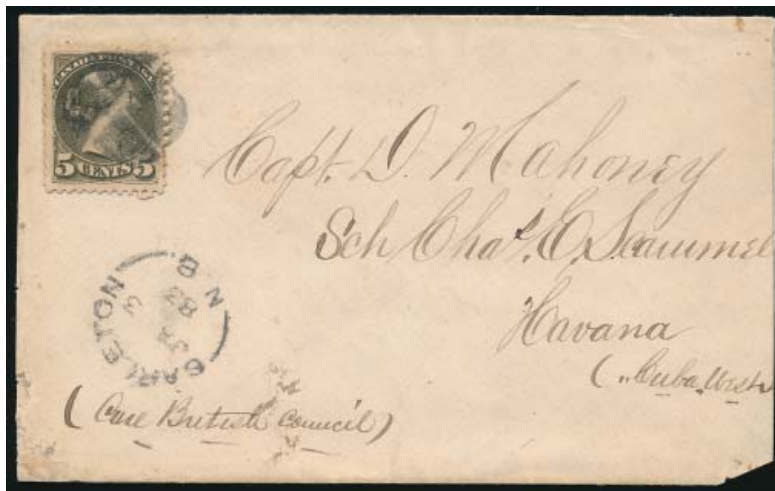 CANADA POSTAGE
5 CENTS 5
Capt. D. Mahoney
Sch Chas. E. Scammel
Havana
(Cuba, West
CARLETON
N B
83
(Care British Council)